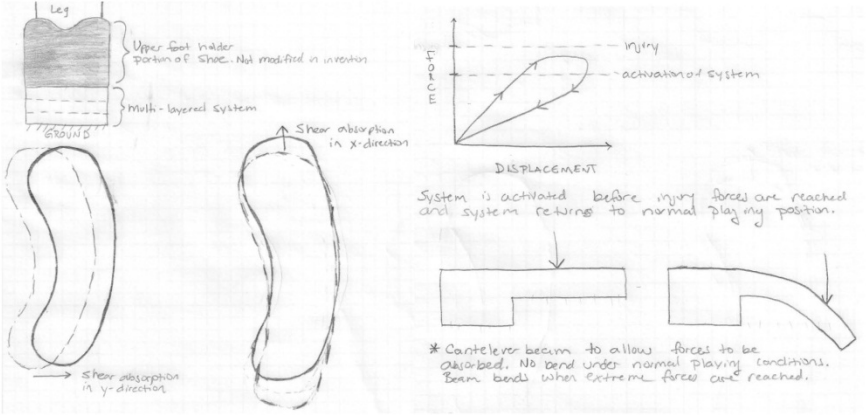 Leg
Upper foot holder
portion of shoe. Not modified in invention
Multi-layered system
GROUND
Shear absorption
in x-direction
Shear absorption
in y-direction
FORCE
injury
activation of system
DISPLACEMENT
System is activated before injury forces are reached
and system returns to normal playing position.
* Cantelever beam to allow forces to be
absorbed. No bend under normal playing conditions.
Beam bends when extreme forces are reached.